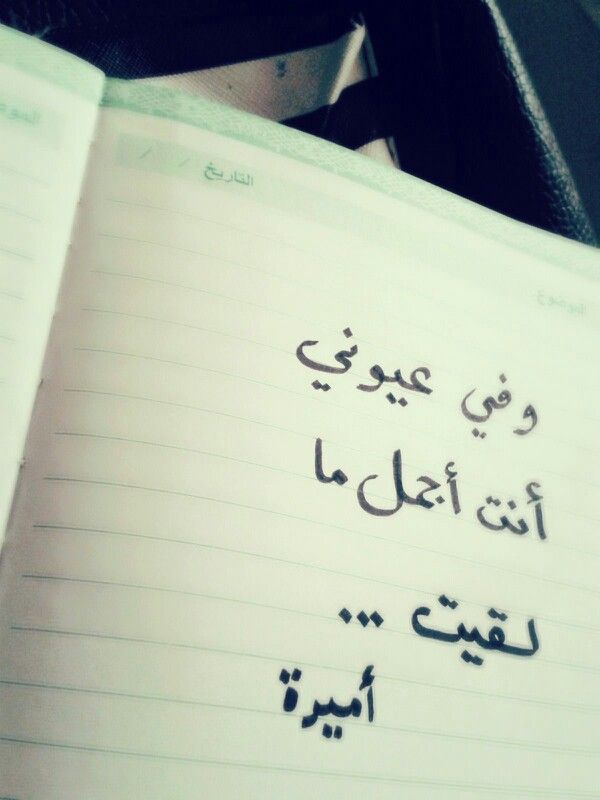 التاريخ / /
الموضوع
وفي عيوني
أنت أجمل ما
لقيت ...
أميرة